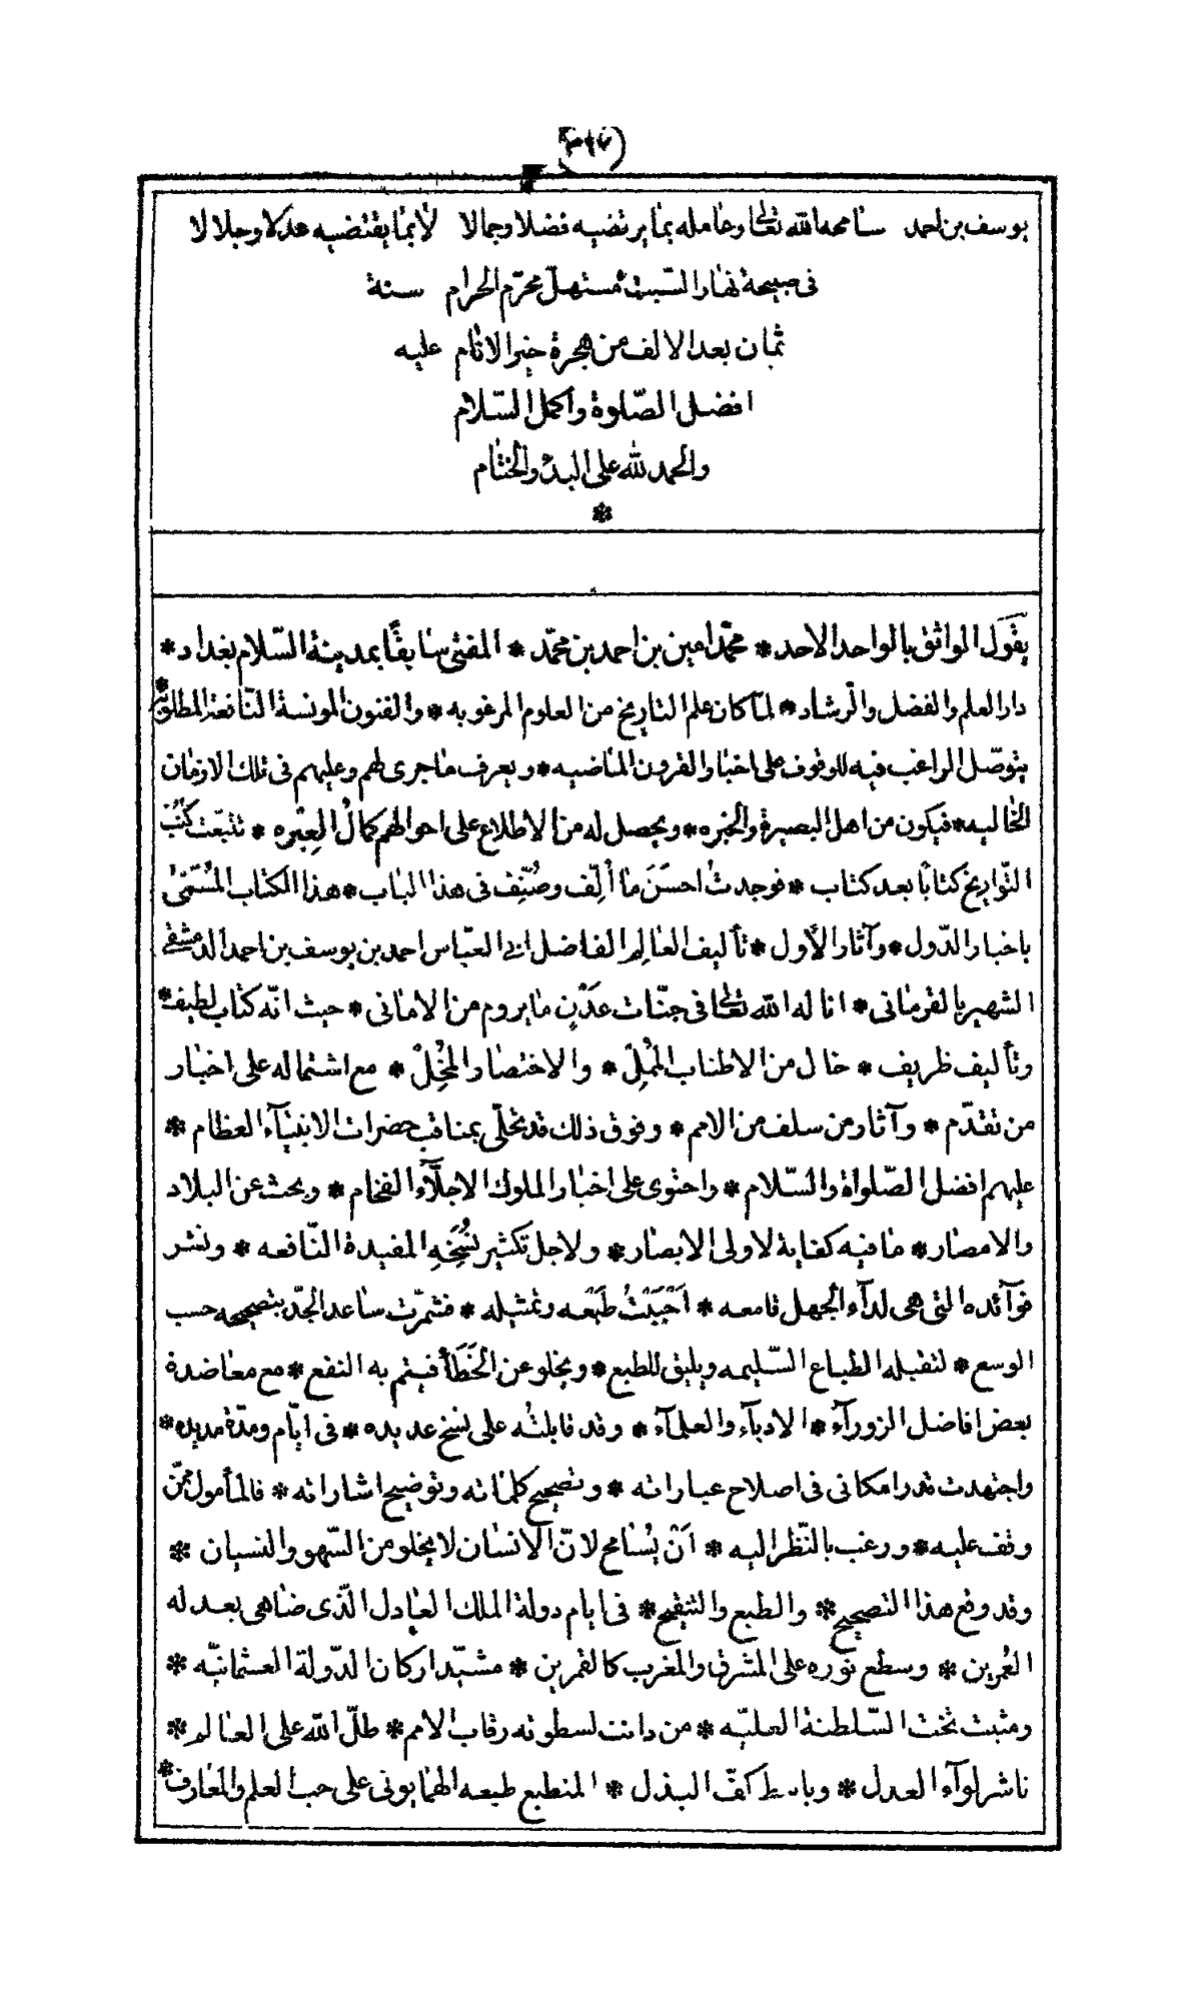 يوسف بن احمد سامحه الله تعالى وعامله بما يرتضيه فضلا وجمالا لا بما يقتضيه عدلا وجلالا
فى صبيحة نهار السّبت مستهلّ محرّم الحرام سنة
ثمان بعد الالف من هجرة خير الانام عليه
افضل الصّلوة وأكمل السّلام
والحمد لله على البدْ والختام
*
يقول الواثق بالواحد الاحد * محمّد امين بن احمد بن محمّد * المفتى سابقًا بمدينة السّلام بغداد *
دار العلم والفضل والرّشاد * لمّا كان علم التاريخ من العلوم المرغوبه * والفنون المونسة النّافعة المطلوبه *
يتوصّل الراغب فيه للوقوف على اخبار القرون الماضيه * ويعرف ما جرى لهم وعليهم فى تلك الازمان
الخاليه * فيكون من اهل البصيرة والخبره * ويحصل له من الاطلاع على احوالهم كمالُ العِبْره * تتبعّت كتُبَ
التّواريخ كتابًا بعد كتاب * فوجدتُ احسَنَ ما أُلِّف وصُنّف فى هذا الباب * هذا الكتاب المُسَمّى
باخبار الدّول * وآثار الأول * تأليف العالِم الفاضل ابى العبّاس احمد بن يوسف بن احمد الدمشقى
الشهير بالقرمانى * اناله الله تعالى فى جنّات عَدْنٍ ما يروم من الامانى * حيث انّه كتاب لطيف *
وتأليف ظريف * خال من الاطناب المُمِلّ * والاختصار المُخِلّ * مع اشتماله على اخبار
من تقدّم * وآثار من سلف من الامم * وفوق ذلك قد تحلّى بمناقب حضرات الانبيآء العظام *
عليهم افضل الصّلواة والسّلام * واحتوى على اخبار الملوك الاجلّآء الفخام * وبحث عن البلاد
والامصار * ما فيه كفاية لاولى الابصار * ولاجل تكثير نُسَخِهِ المفيدة النّافعه * ونشر
فوآئده التى هى لدآء الجهل قامعه * اَحْبَبْتُ طَبْعَه وتمثيله * فشمرّت ساعد الجّد بتصحيحه حسب
الوسع * لتقبله الطباع السّليمه ويليق للطبع * ويخلو عن الخَطَأ فيتم به النفع * مع معاضدة
بعض افاضل الزورآء * الادبآء والعلمآء * وقد قابلتُه على نسخ عديده * فى ايّام ومدّة مديده *
واجتهدت قدر امكانى فى اصلاح عباراته * وتصحيح كلماته وتوضيح اشاراته * فالمأمول ممّن
وقف عليه * ورغب بالنّظر اليه * اَنْ يُسَامح لانّ الانسان لا يخلو من السّهو والنسيان *
وقد وقع هذا التصحيح * والطبع والتنقيح * فى ايام دولة الملك العادل الّذى ضاهى بعدله
العُمرين * وسطع نوره على المشرق والمغرب كالقمرين * مشيّد اركان الدّولة العثمانيّه *
ومثبت تخت السّلطنة العليّه * من دانت لسطوته رقاب الامم * ظلّ الله على العالم *
ناشر لوآء العدل * وباسط كفّ البذل * المنطبع طبعه الهمايونى على حب العلم والمعارف *